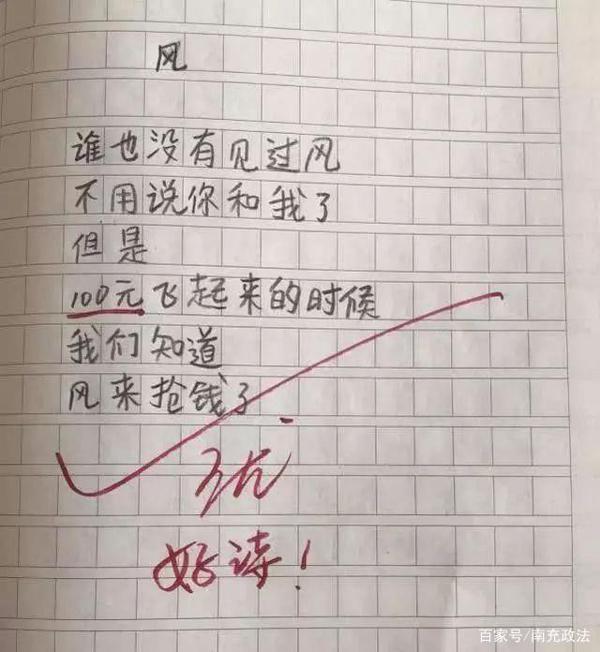 风
谁也没有见过风
不用说你和我了
但是
100元飞起来的时候
我们知道
风来抢钱了
优
好诗！
百家号/南充政法